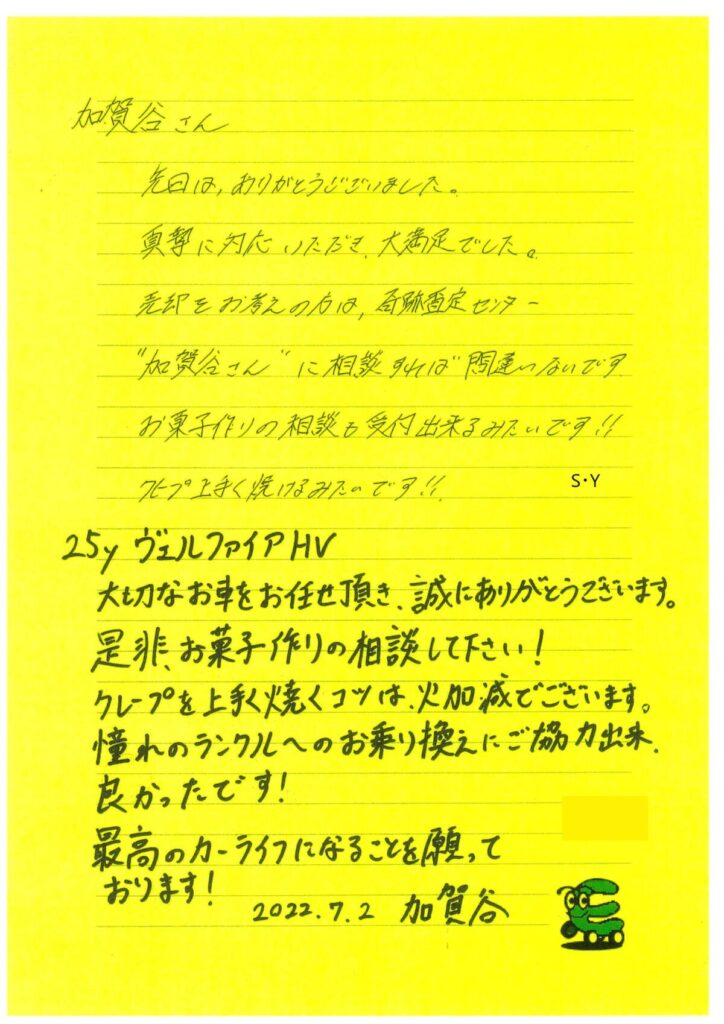 加賀谷さん
先日は、ありがとうございました。
真摯に対応いただき、大満足でした。
売却をお考えの方は、奇跡査定センター
"加賀谷さん"に相談すれば間違いないです
お菓子作りの相談も受付出来るみたいです!!
クレープ上手く焼けるみたいです!!
S・Y
25y ヴェルファイアHV
大切なお車をお任せ頂き、誠にありがとうございます。
是非、お菓子作りの相談して下さい!
クレープを上手く焼くコツは、火加減でございます。
憧れのランクルへのお乗り換えにご協力出来、
良かったです!
最高のカーライフになることを願って
おります!
2022.7.2 加賀谷